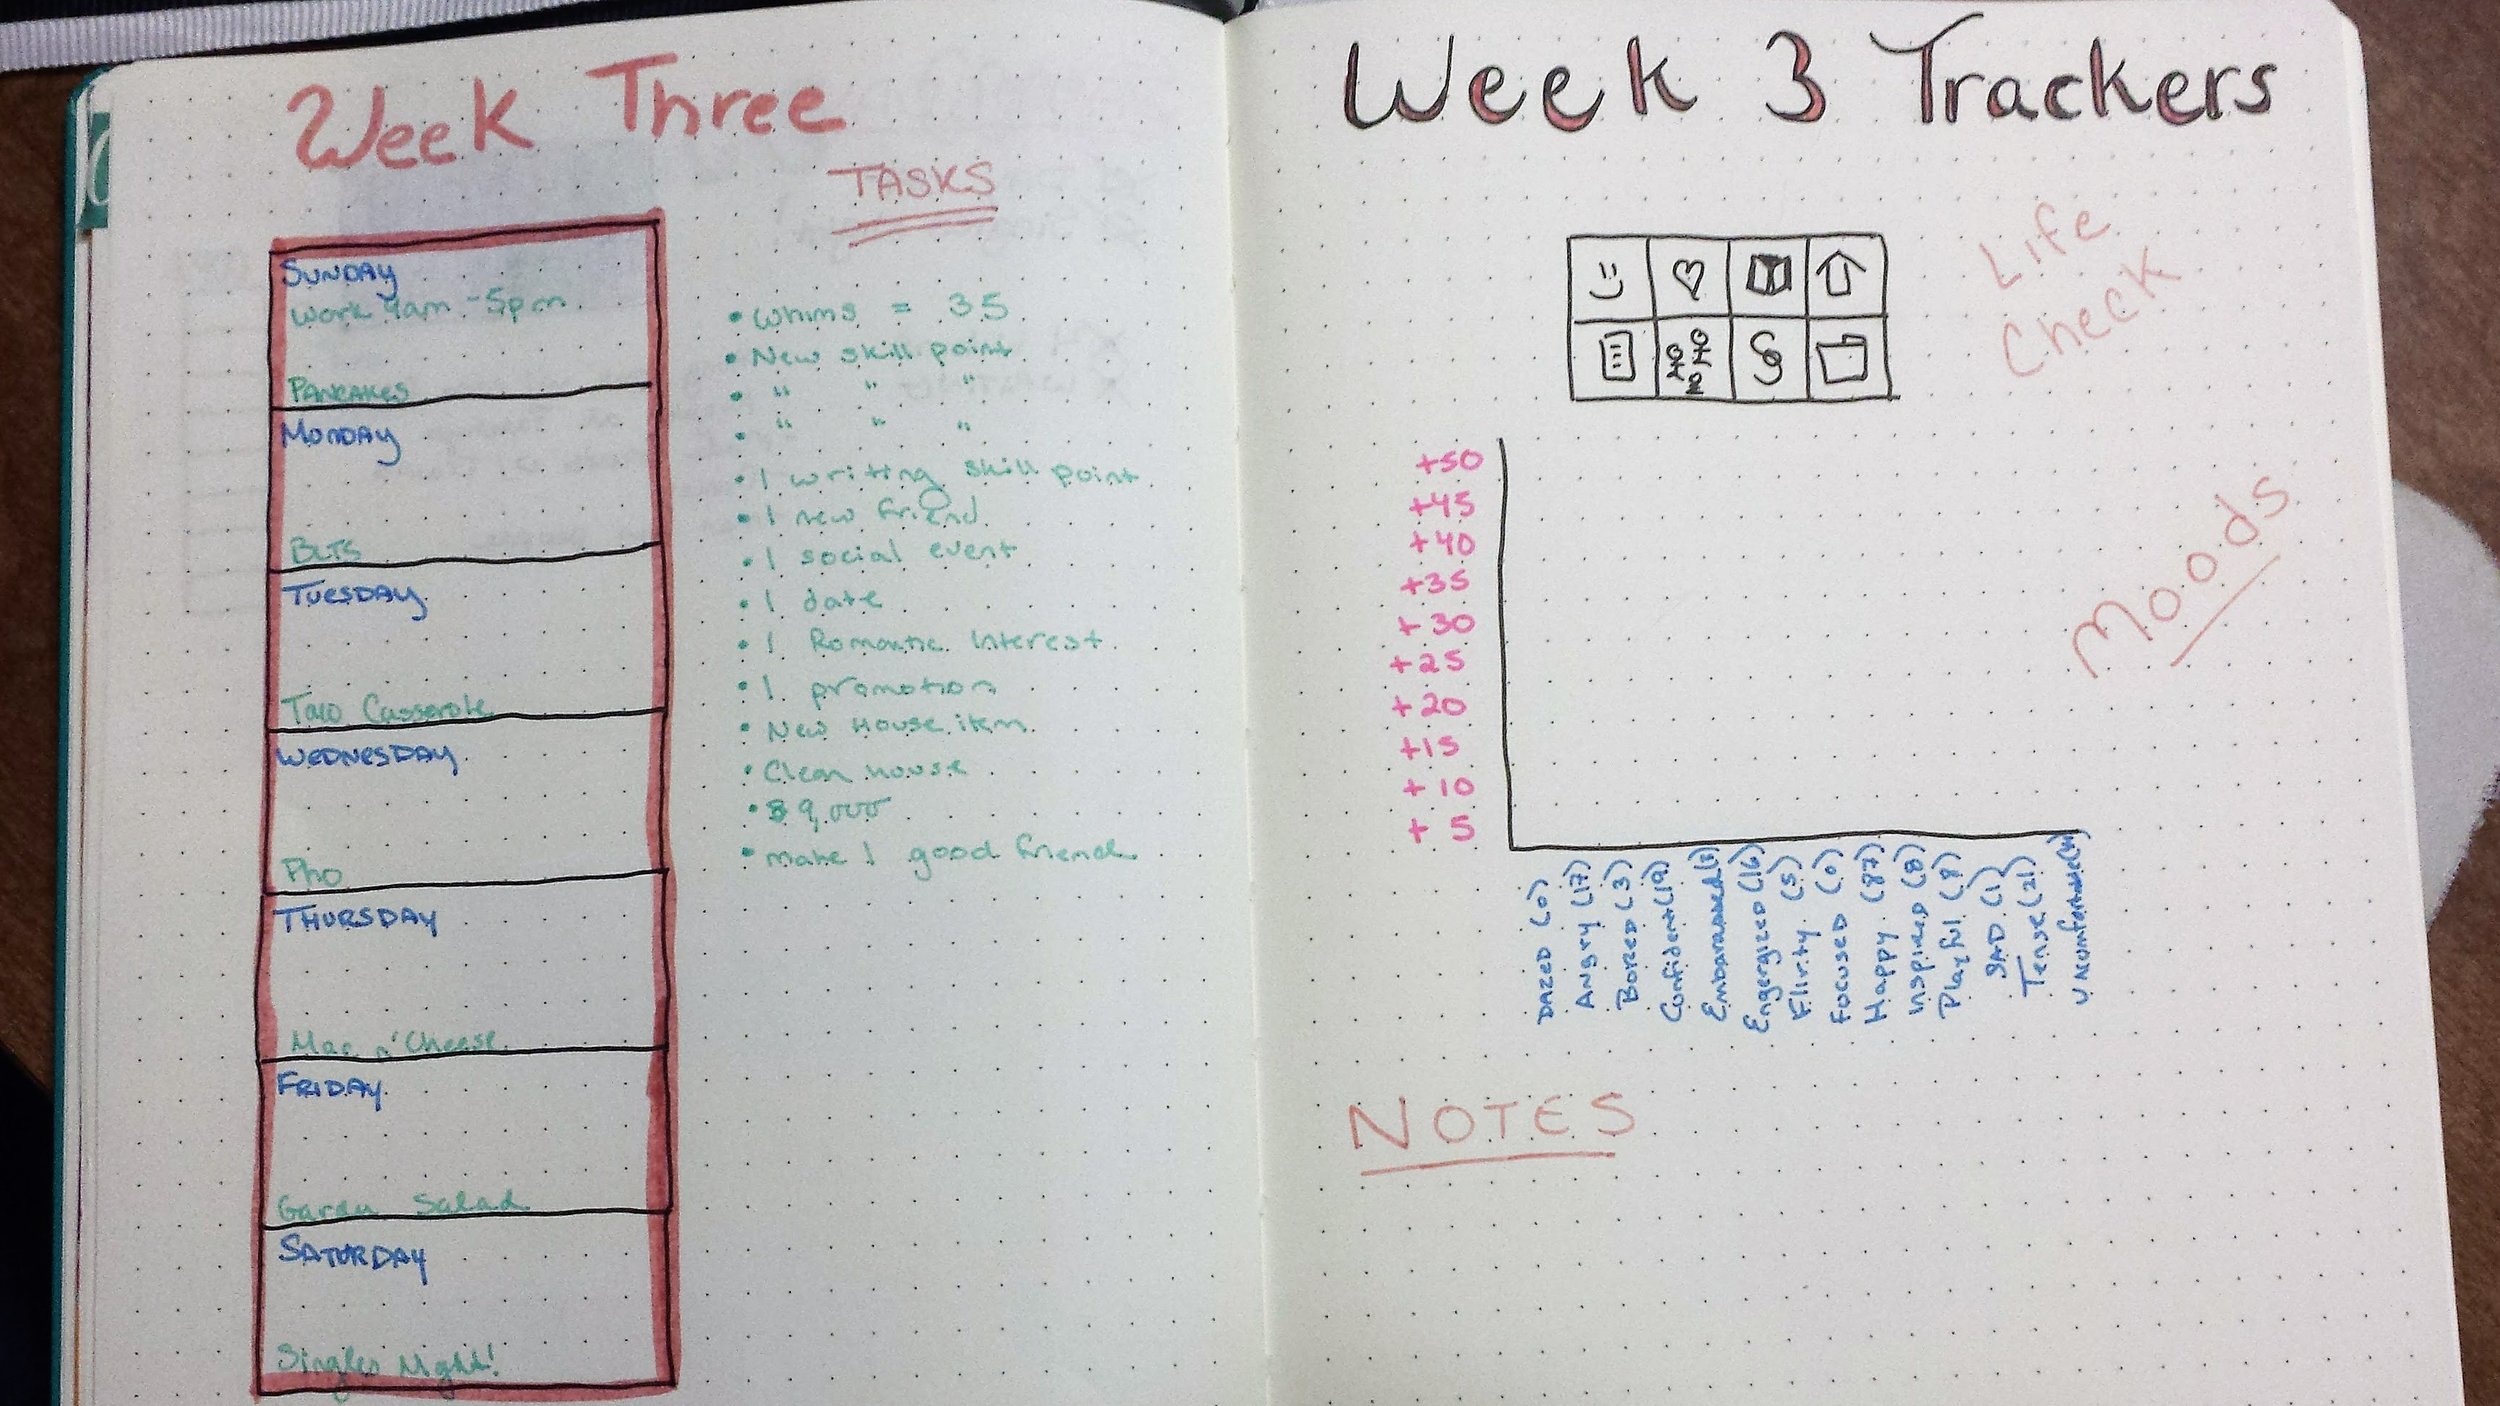 Week Three
TASKS
SUNDAY
Work 9am - 5pm
PANCAKES
MONDAY
BLTS
TUESDAY
Taco Casserole
WEDNESDAY
Pho
THURSDAY
Mac n' Cheese
FRIDAY
Garden Salad
SATURDAY
Singles Night!
• Whims = 35
• New skill point
• " " "
• " " "
• 1 writing skill point
• 1 new friend
• 1 social event
• 1 date
• 1 Romantic Interest
• 1 promotion
• New House item
• Clean house
• $9,000
• make 1 good friend
Week 3 Trackers
Life
Check
Moods
+50
+45
+40
+35
+30
+25
+20
+15
+10
+5
DAZED (0)
Angry (17)
Bored (3)
Confident (19)
Embarassed
Engergized (16)
Flirty (5)
Focused (0)
Happy (87)
Inspired (8)
Playful (9)
SAD (1)
Tense (21)
Uncomfortable
NOTES